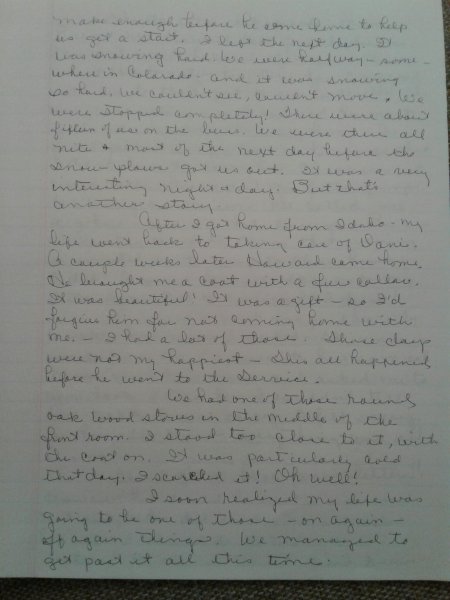 make enough before he come home to help
us get a start. I left the next day. It
was snowing hard. We were halfway - some-
where in Colorado - and it was snowing
so hard, we couldn't see, couldn't move. We
were stopped completely! There were about
fifteen of us on the bus. We were there all
nite & most of the next day before the
snow plows got us out. It was a very
interesting night & day. But that's
another story.
After I got home from Idaho - my
life went back to taking care of Dani.
A couple weeks later Howard came home.
He brought me a coat with a fur collar.
It was beautiful! It was a gift - so I'd
forgive him for not coming home with
me. - I had a lot of those. Those days
were not my happiest - This all happened
before he went to the Service.
We had one of those round
oak wood stoves in the middle of the
front room. I stood too close to it, with
the coat on. It was particularly cold
that day. I scorched it! Oh well!
I soon realized my life was
going to be one of those - on again -
off again things. We managed to
get past it all this time.